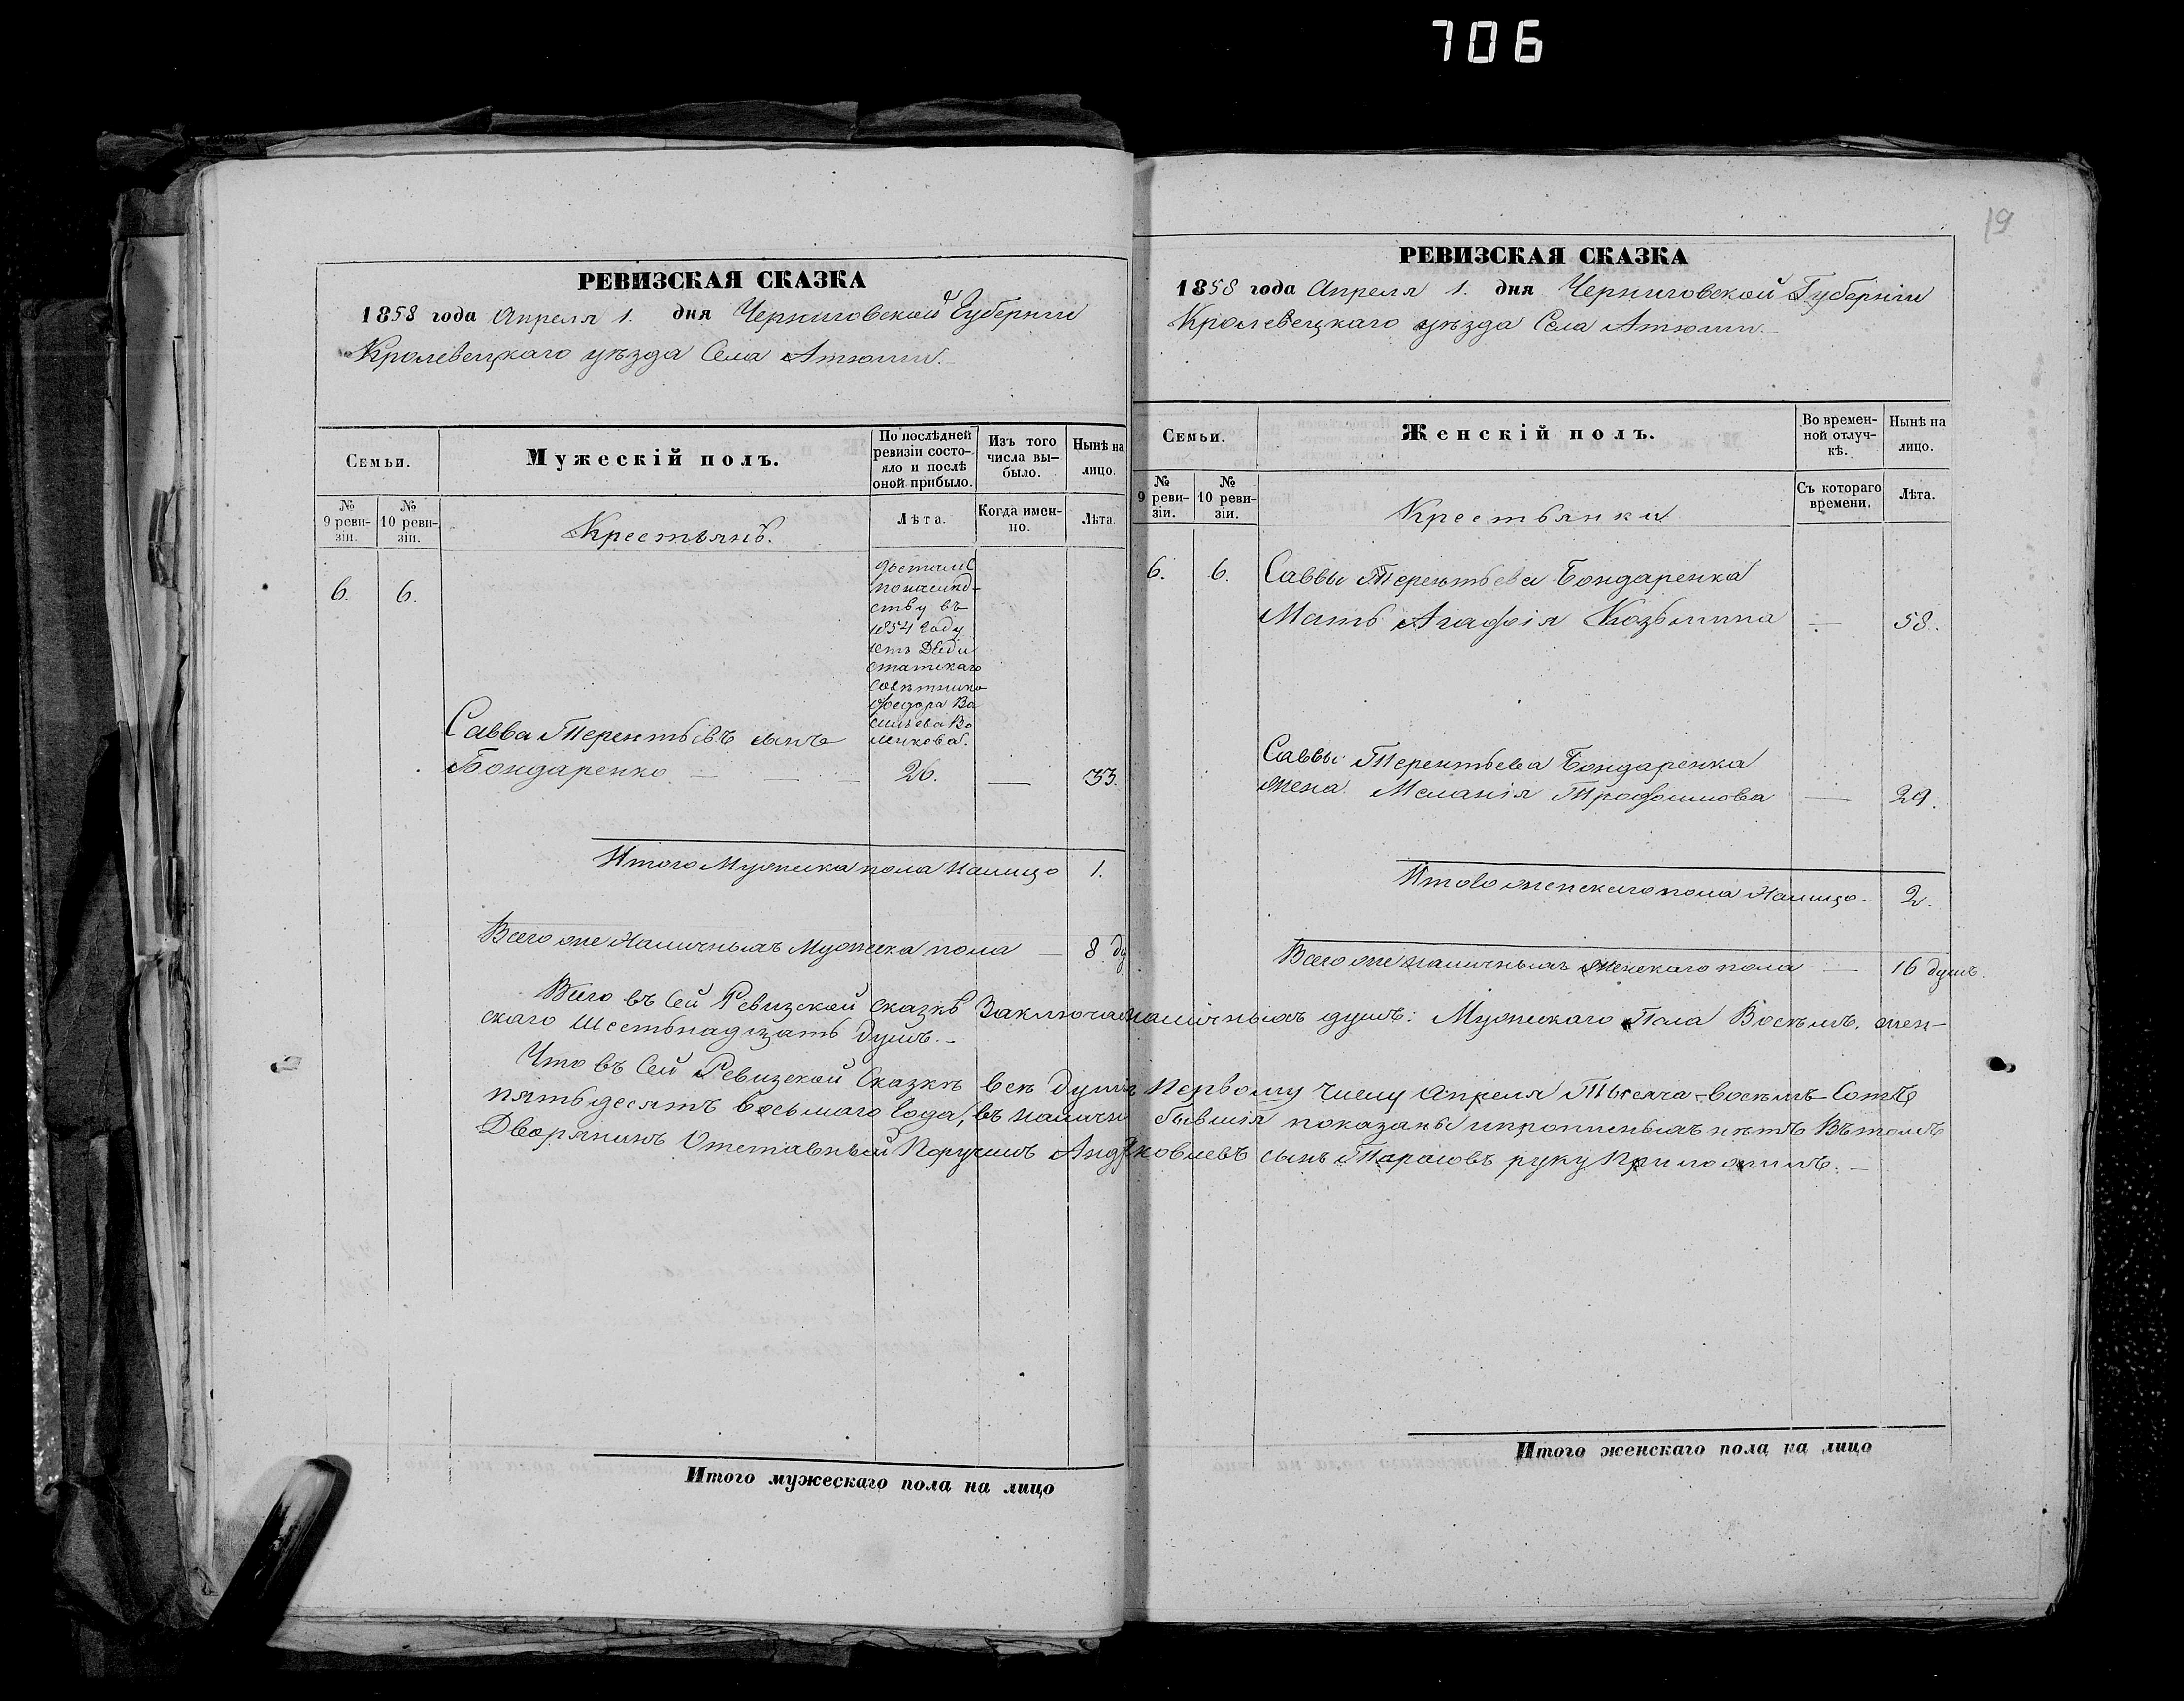 706
19
РЕВИЗСКАЯ СКАЗКА
1858 года Апреля 1. дня Черниговской Губерніи
Кролевецкаго уѣзда Села Атюши.
Семьи.
Мужескій полъ.
По послѣдней
ревизіи состо-
яло и послѣ
оной прибыло.
Изъ того
числа вы-
было.
Нынѣ на
лицо.
№
9 реви-
зіи.
№
10 реви-
зіи.
Крестьянъ.
Лѣта.
Когда имен-
но.
Лѣта.
6. 6.
въ
1854 Году
статскаго
совѣтника
Федора Ва
сильева Во
ленкова.
Савва Терентьевъ сынъ
Бондаренко — — — 26. — 33.
Итого Мужеска пола Налицо 1.
Всего же Наличныхъ Мужеска пола — 8 ду
РЕВИЗСКАЯ СКАЗКА
1858 года Апреля 1. дня Черниговской Губерніи
Кролевецкаго уѣзда Села Атюши.
Семьи.
Женскій полъ.
Во времен-
ной отлуч-
кѣ.
Нынѣ на
лицо.
№
9 реви-
зіи.
№
10 реви-
зіи.
Крестьянки
Съ котораго
времени.
Лѣта.
6. 6. Саввы Терентьева Бондаренка
Мать Агафія Козьмина — 58.
Саввы Терентьева Бондаренка
жена Меланія Трофимова — 29.
Итого женскаго пола Налицо - 2.
Всего же наличныхъ женскаго пола — 16 душъ.
Всего въ Сей Ревизской Сказкѣ наличныхъ душъ: Мужескаго Пола Восемъ, жен-
скаго Шестьнадцать Душъ.-
Что въ Сей Ревизской Сказкѣ всѣ Души Первому Числу Апреля Тысяча-восемъ-Сотъ
пятьдесятъ восьмаго Года, въ налично бывшія показаны и прописныхъ нѣтъ Въ томъ
Дворянинъ Отставный Поручикъ сынъ Тарасовъ руку Приложилъ.—
Итого мужескаго пола на лицо
Итого женскаго пола на лицо